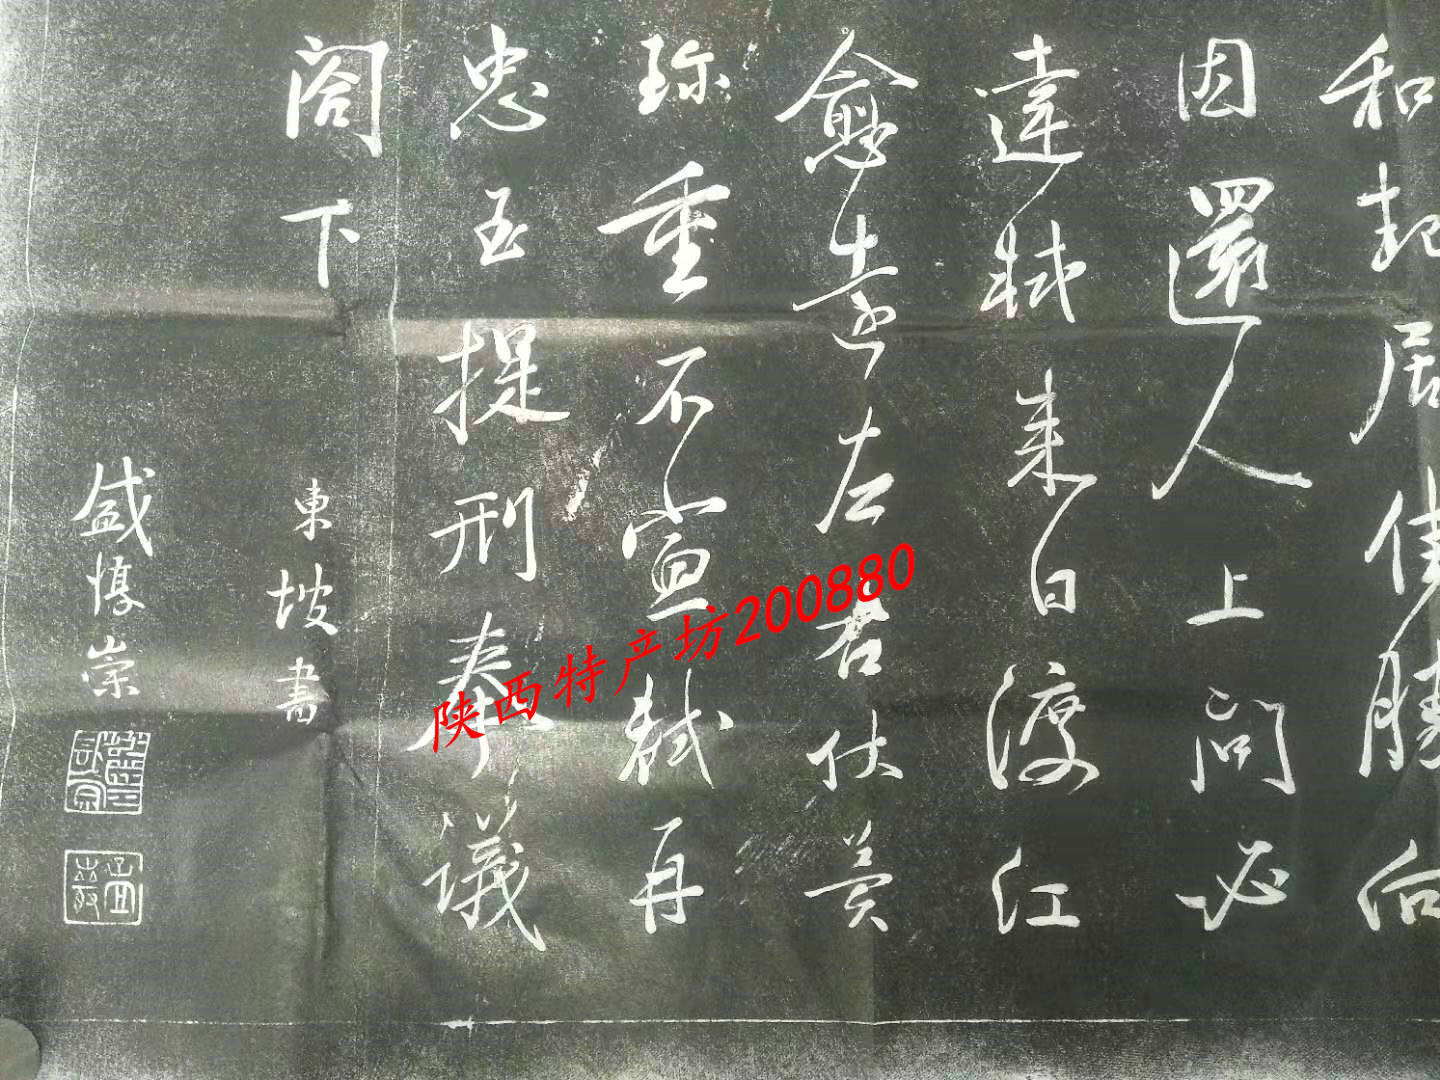 和起居佳勝向
因還人上問必
達軾来日渡江
愈遠左右伏冀
珍重不宣軾再
忠玉提刑奉議
閣下
東坡書
盛惇崇
陕西特产坊200880